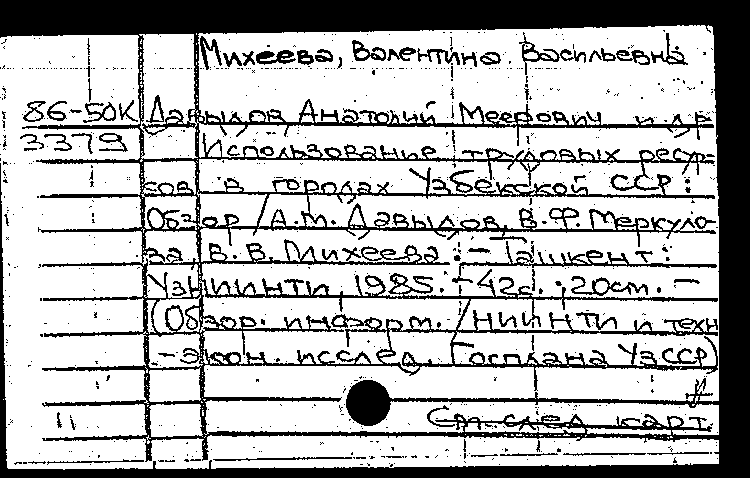 Михеева, Валентина Васильевна
86-50К Давыдов, Анатолий Меерович и др
3379 Использование трудовых ресур-
сов в городах Узбекской ССР:
Обзор / А.М. Давыдов, В.Ф. Меркуло-
ва, В.В. Михеева. – Ташкент:
УзНИИНТИ, 1985. – 42с. ; 20см. –
(Обзор. информ. / НИИНТИ и техн
.-экон. исслед. Госплана УзССР)
См. след. карт.